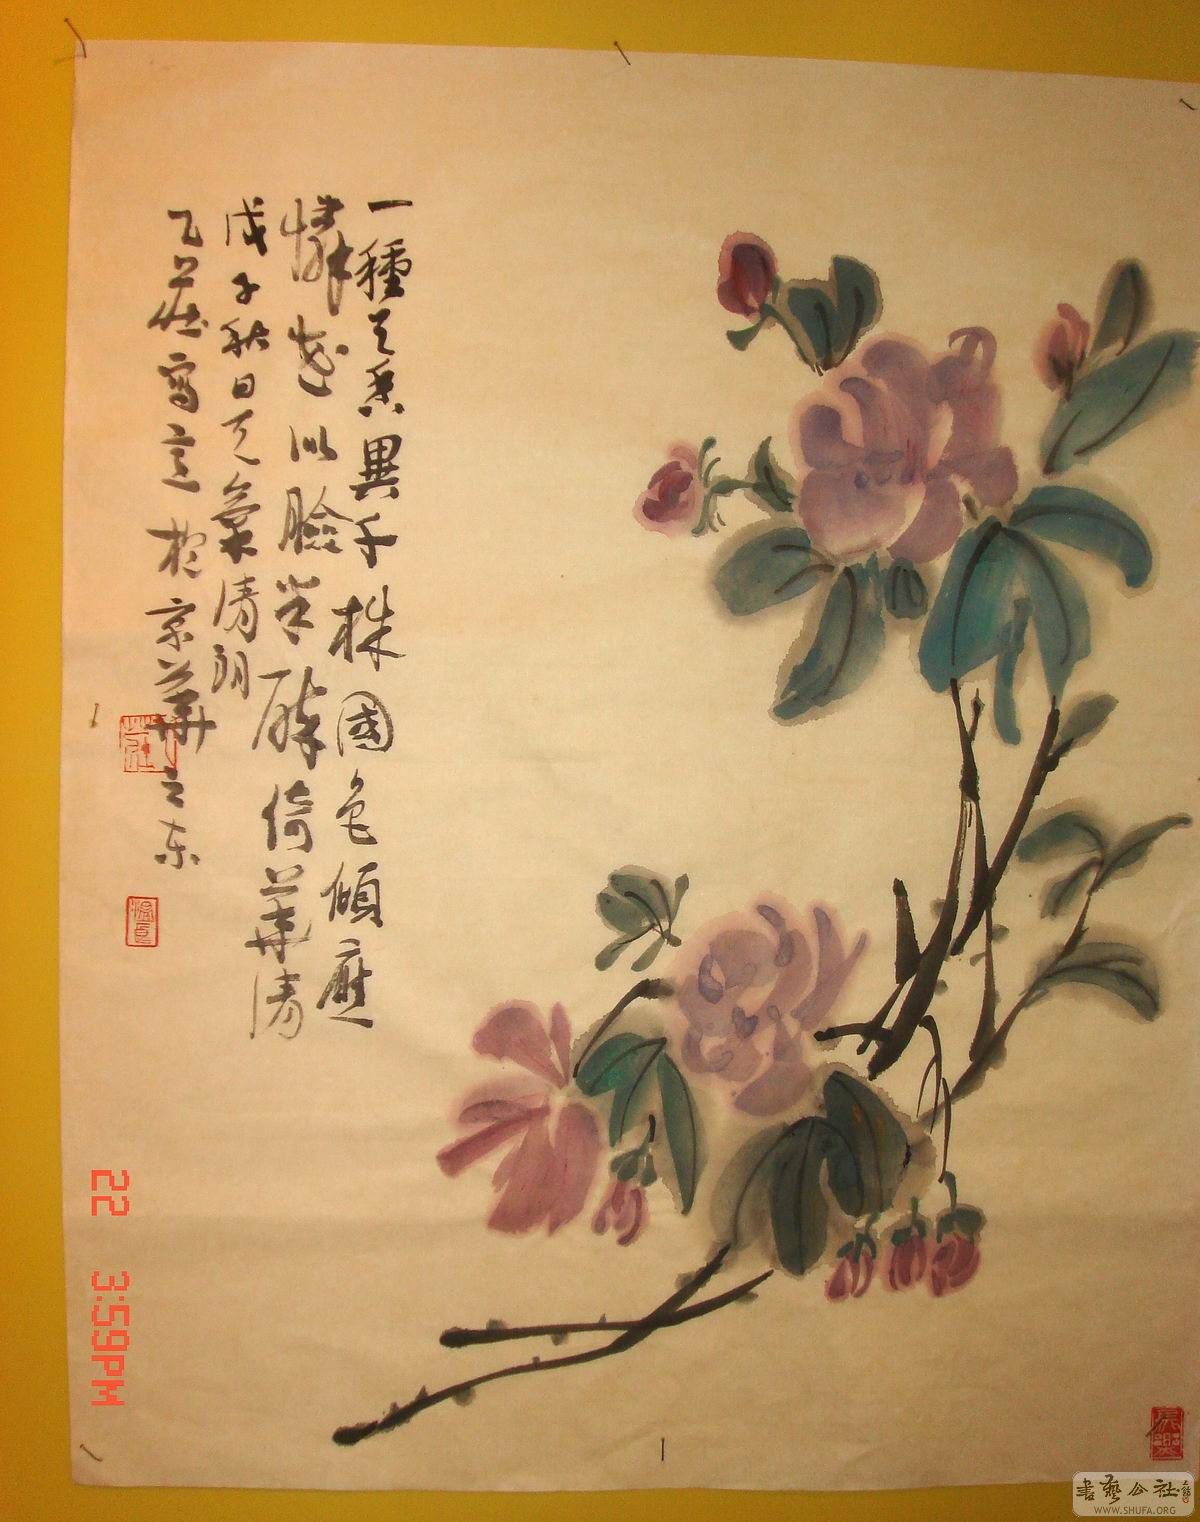 一種天香異千株國色傾應
憐花似臉半醉倚華清
戊子秋日天氣清朗
莊寫意於京華之東
22 3:59PM
書藝公社
WWW.SHUFA.ORG